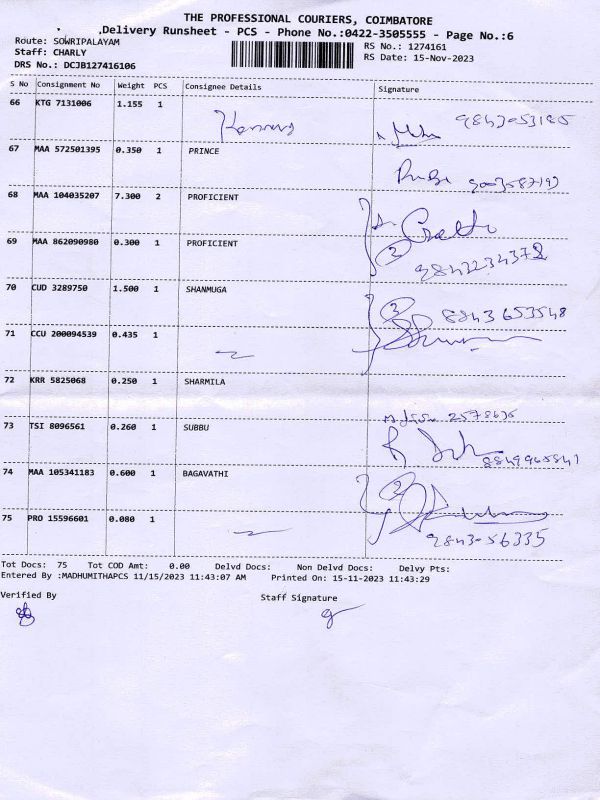 THE PROFESSIONAL COURIERS, COIMBATORE
Delivery Runsheet - PCS - Phone No.:0422-3505555 - Page No.:6
Route: SOWRIPALAYAM
RS No.: 1274161
Staff: CHARLY
RS Date: 15-Nov-2023
DRS No.: DCJB127416106
S No Consignment No Weight PCS Consignee Details Signature
66 KTG 7131006 1.155 1
67 MAA 572501395 0.350 1 PRINCE
68 MAA 104035207 7.300 2 PROFICIENT
69 MAA 862090980 0.300 1 PROFICIENT
70 CUD 3289750 1.500 1 SHANMUGA 8843653548
71 CCU 200094539 0.435 1
72 KRR 5825068 0.250 1 SHARMILA
73 TSI 8096561 0.260 1 SUBBU
74 MAA 105341183 0.600 1 BAGAVATHI
75 PRO 15596601 0.080 1 9843056335
Tot Docs: 75 Tot COD Amt: 0.00 Delvd Docs: Non Delvd Docs: Delvy Pts:
Entered By :MADHUMITHAPCS 11/15/2023 11:43:07 AM Printed On: 15-11-2023 11:43:29
Verified By Staff Signature